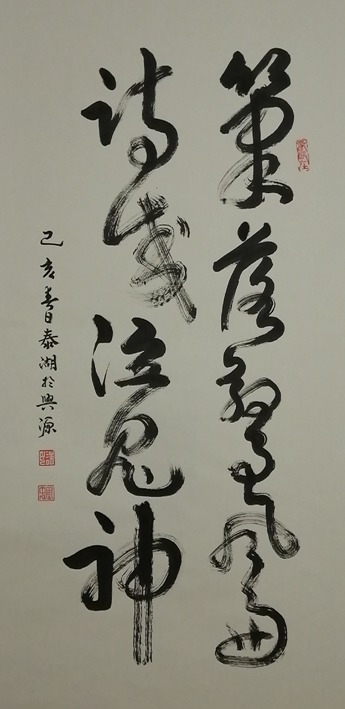 筆落驚風雨
詩成泣鬼神
己亥春日泰湖於興源